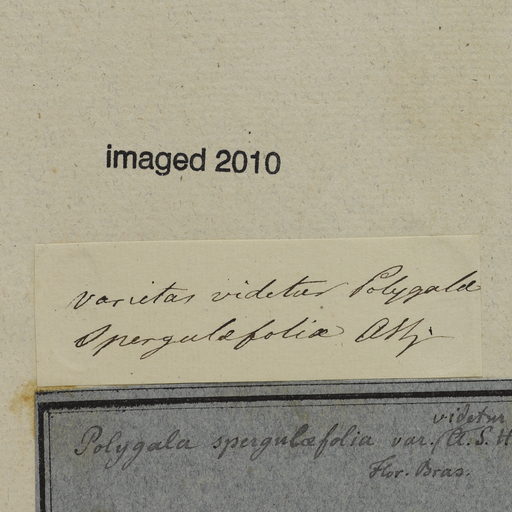 imaged 2010
varietas videtur Polygalæ
Spergulæfoliæ ASH.
videtur
Polygala spergulæfolia var. (A. S. H
Flor. Bras.